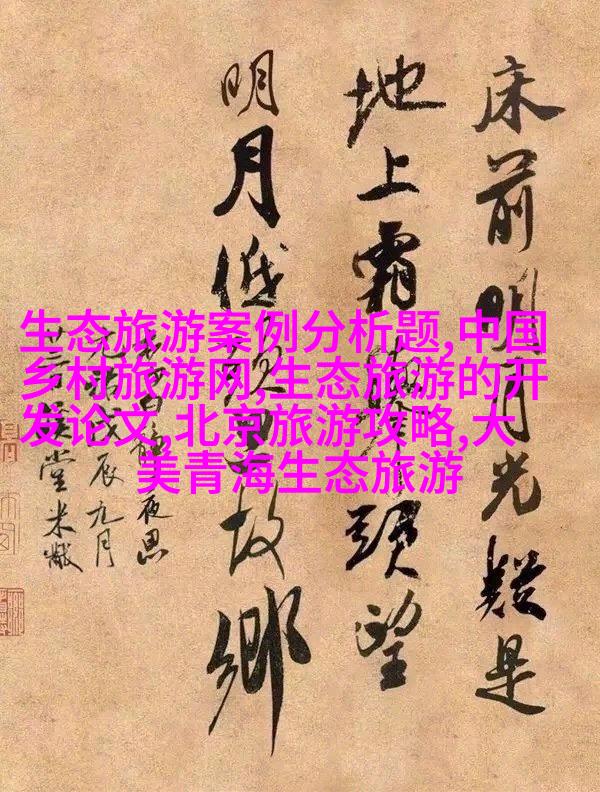 床前明月光疑是
地上霜舉頭望
明月低頭思故鄉
夜思
戊辰九月
廿三溪堂米黻
生态旅游案例分析题,中国
乡村旅游网,生态旅游的开
发论文,北京旅游攻略,大
美青海生态旅游